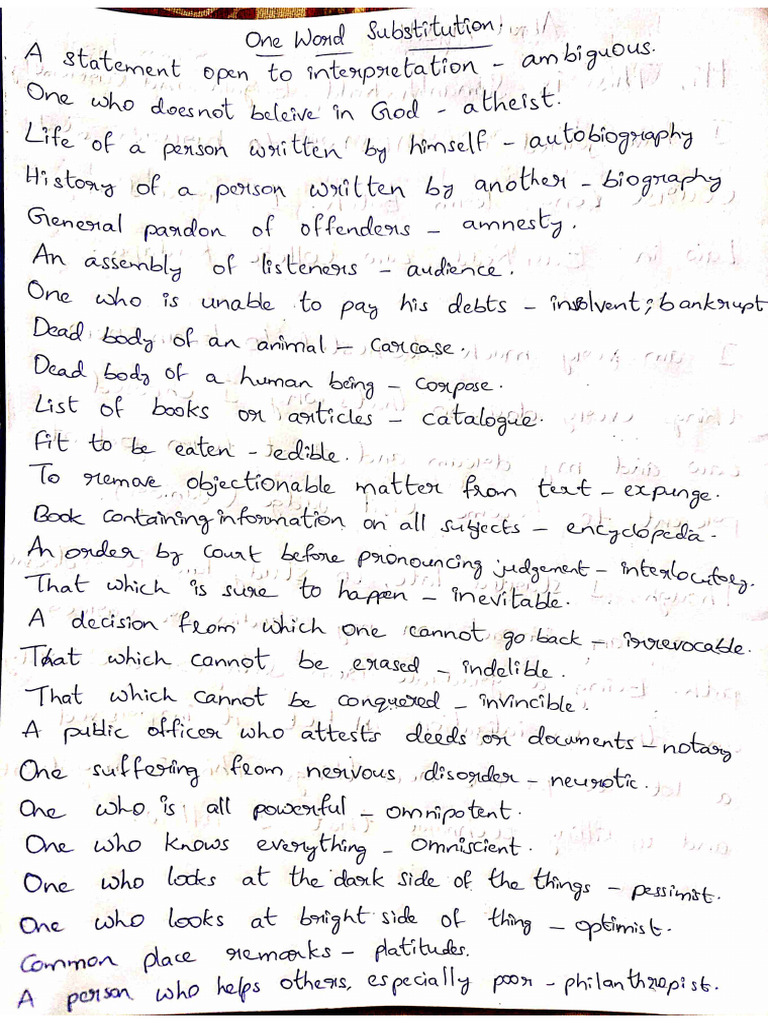 One Word Substitution
A statement open to interpretation - ambiguous.
One who doesnot beleive in God - atheist.
Life of a person written by himself - autobiography
History of a person written by another - biography
General pardon of offenders - amnesty.
An assembly of listeners - audience.
One who is unable to pay his debts - insolvent; bankrupt
Dead body of an animal - carcase.
Dead body of a human being - corpose.
List of books or articles - catalogue.
Fit to be eaten - edible.
To remove objectionable matter from text - expunge.
Book containing information on all subjects - encyclopedia.
An order by court before pronouncing judgement - interlocutory.
That which is sure to happen - inevitable.
A decision from which one cannot go back - irrevocable.
That which cannot be erased - indelible.
That which cannot be conquered - invincible.
A public officer who attests deeds or documents - notary
One suffering from nervous disorder - neurotic.
One who is all powerful - omnipotent.
One who knows everything - omniscient.
One who looks at the dark side of the things - pessimist.
One who looks at bright side of thing - optimist.
Common place remarks - platitudes.
A person who helps others, especially poor - philanthropist.